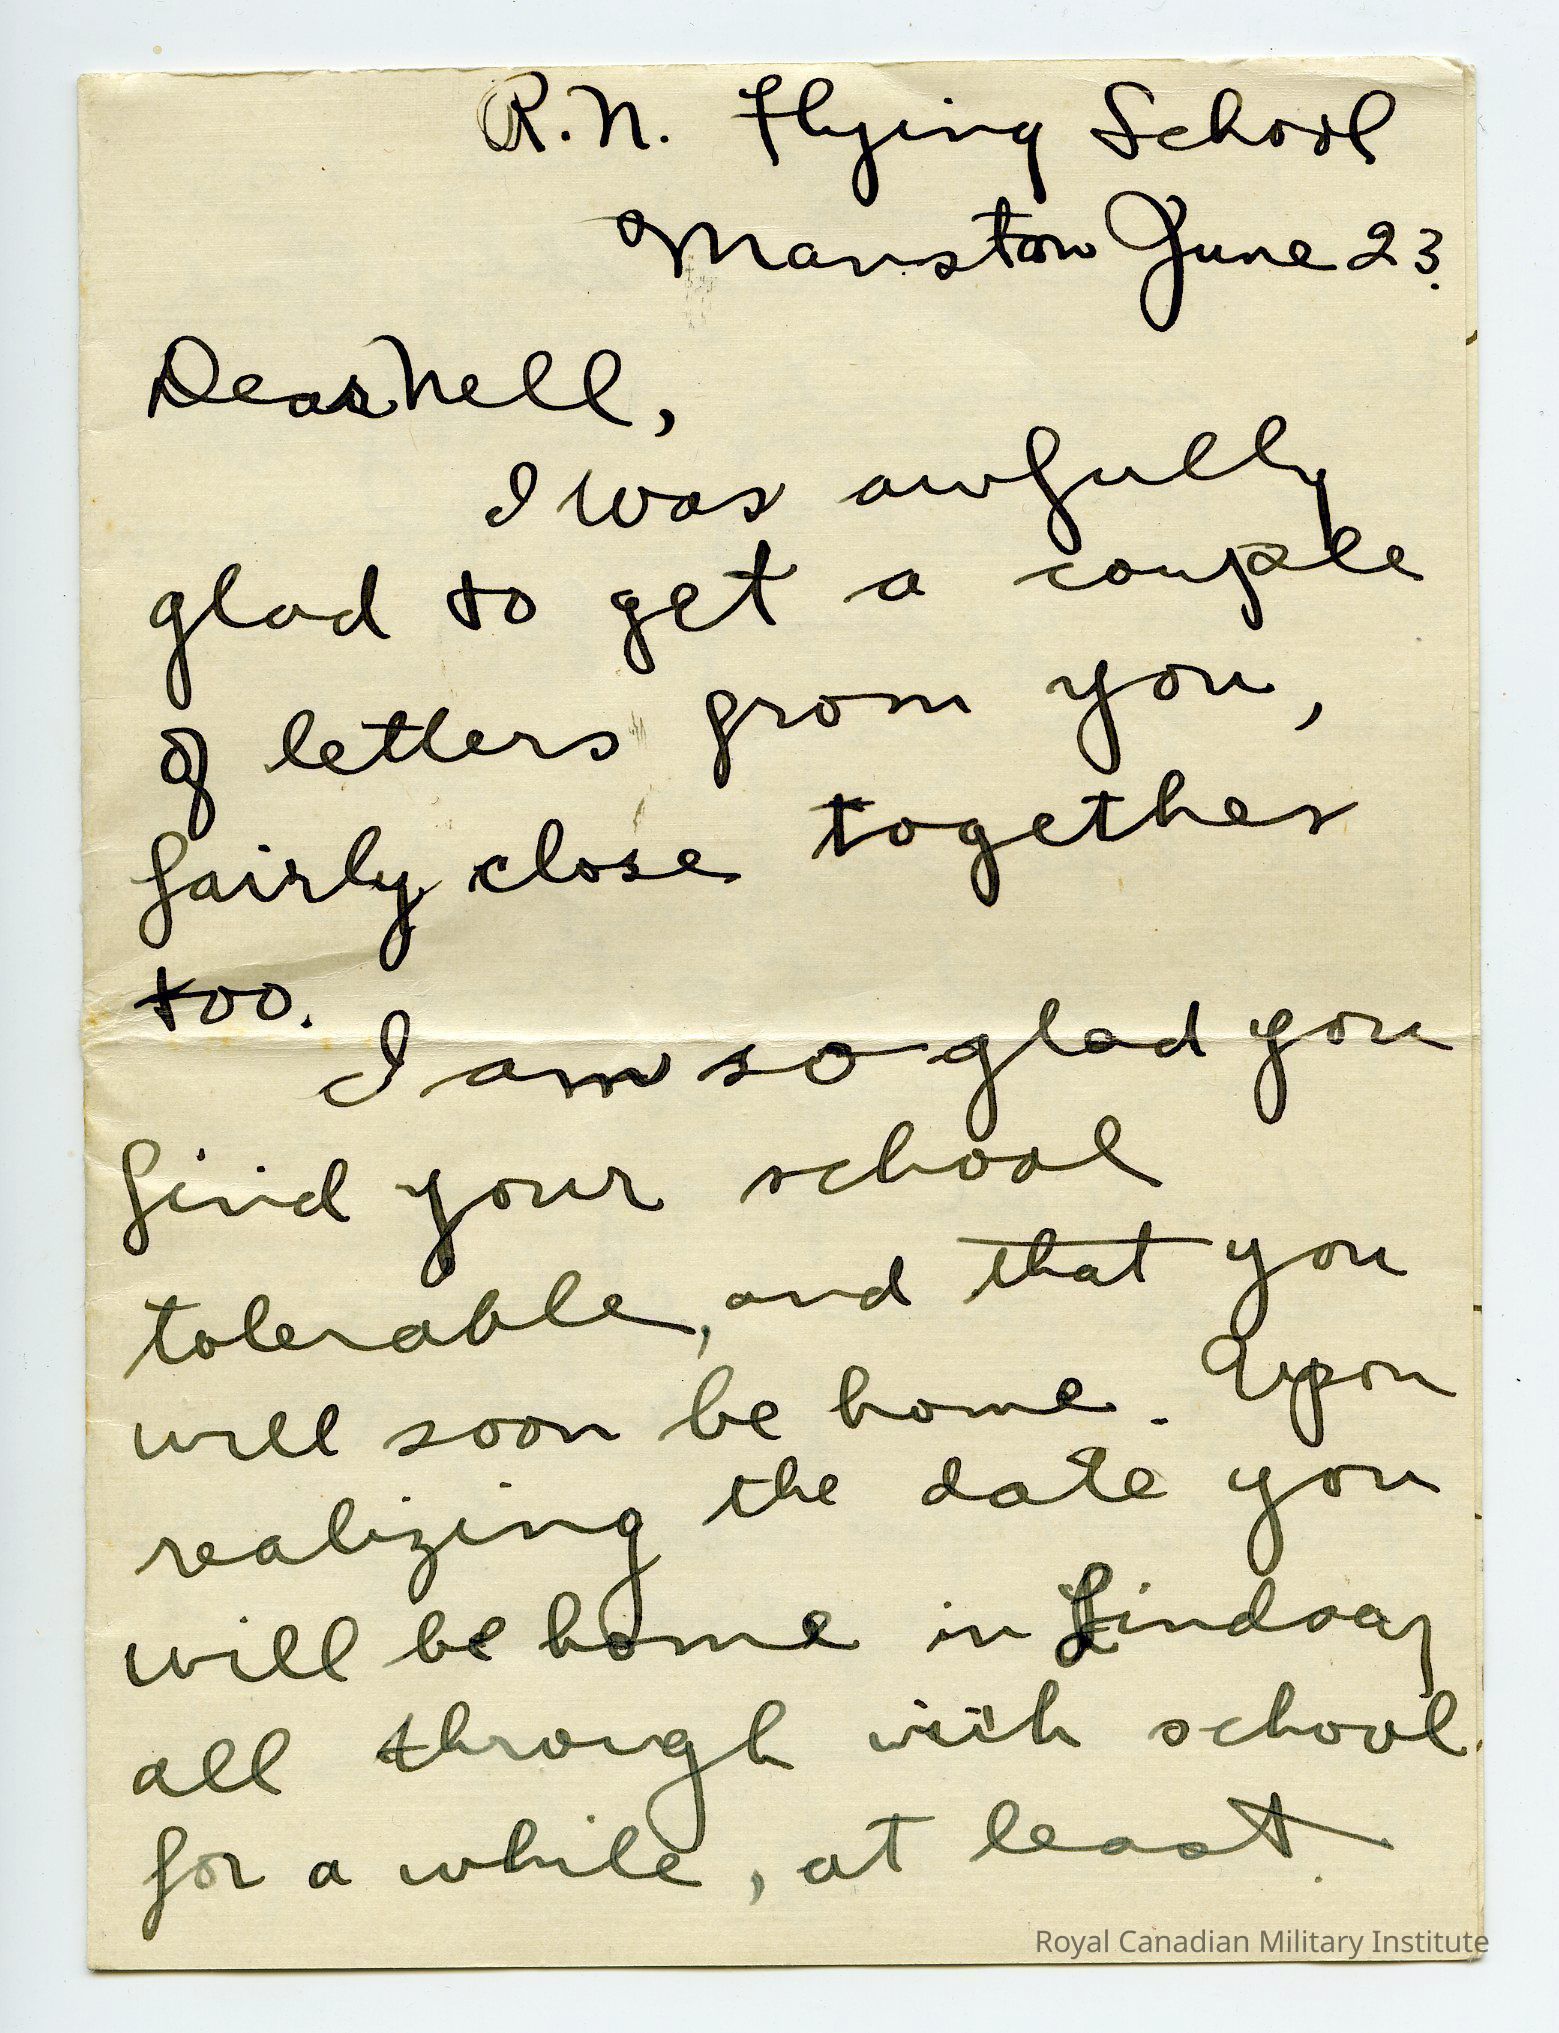 R.N. Flying School
Manston June 23.
Dear Nell,
I was awfully
glad to get a couple
of letters from you,
fairly close together
too.
I am so glad you
find your school
tolerable, and that you
will soon be home. Upon
realizing the date you
will be home in Lindsay
all through with school
for a while, at least.
Royal Canadian Military Institute